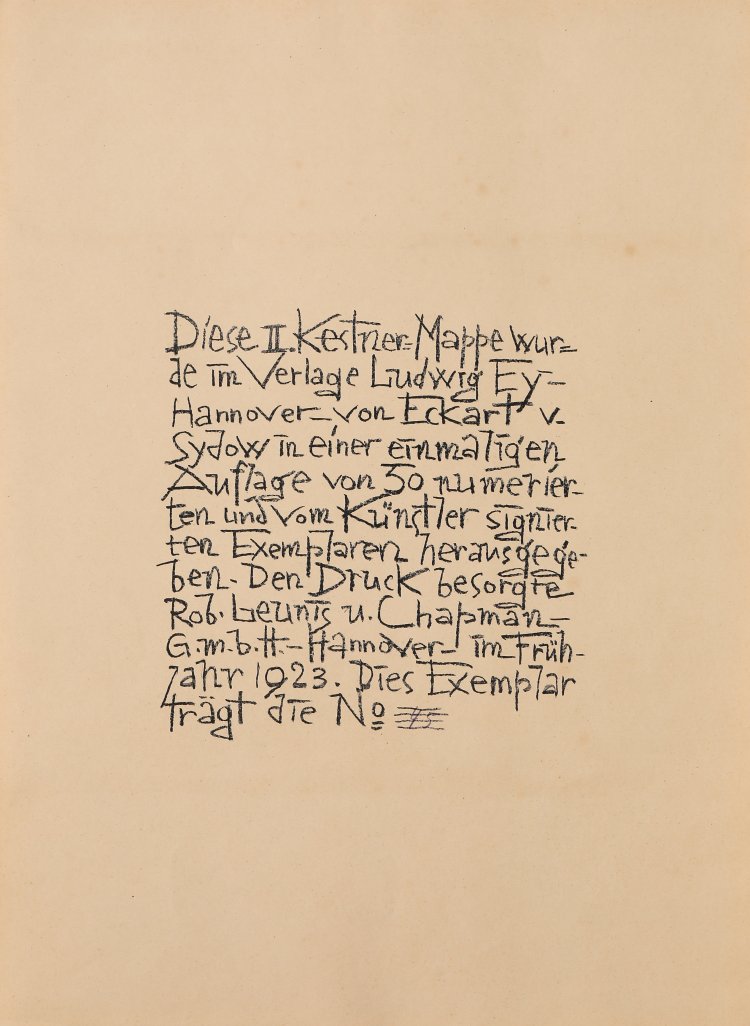 Diese II. Kestner-Mappe wur-
de im Verlage Ludwig Ey-
Hannover-von Eckart v.
Sydow in einer einmaligen
Auflage von 50 numerier-
ten und vom Künstler signier-
ten Exemplaren herausgege-
ben. Den Druck besorgte
Rob. Leunis u. Chapman-
G.m.b.H.-Hannover- im Früh-
jahr 1923. Dies Exemplar
trägt die No